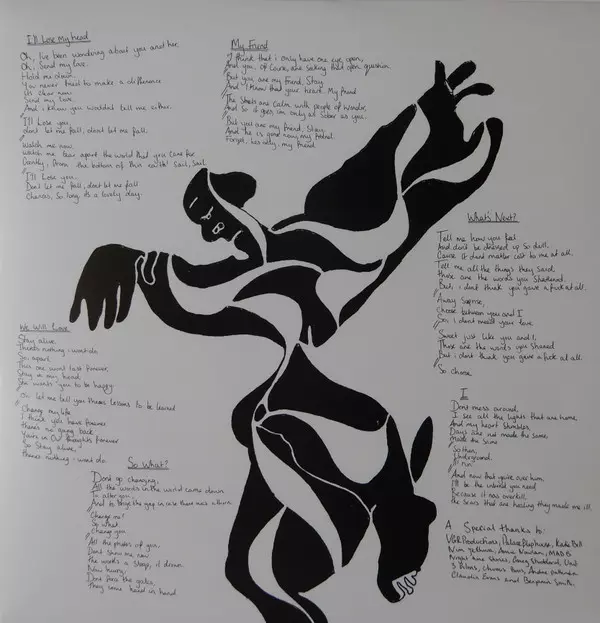 I'll Lose my head
Oh, I've been wondering about you and her
Oh, Send my love.
Hold me close
You never tried to make a difference
Us alone now
Send my love.
And I know you wouldn't tell me either.
I'll Lose you
don't let me fall, don't let me fall.
watch me now
watch me tear apart the world that you came for
Gently, from the bottom of this earth! Sail, Sail
I'll Lose you.
Dont let me fall, dont let me fall
So long. its a lovely day.
My Friend
I think that i only have one eye open,
And you of course, are asking that open question
But you are my friend. Stay
And I know that your heart. My friend
The Streets are calm with people of wonder,
And so it goes, im only as sober as you.
But you are my friend. Stay
And he is good now, my friend.
Forget, hes only, my friend
What's Next?
Tell me how you feel
And dont be dressed up so dull.
Cause it dont matter cost to me at all.
Tell me all the things they said,
those are the words you Shattered.
But, i dont think you gave a fuck at all.
Away Suprise,
Choose between you and I
So, i dont need your love
Sweet just like you and I.
Those are the words you Shared
But i dont think you give a fuck at all.
So choose
We Will Leave
Stay alive.
theres nothing i wont do.
So apart.
This one wont last forever.
Stay in our head
She wants you to be happy.
Oh let me tell you theres lessons to be learned
Change my life
I think you have forever
theres no going back
Youre in our thoughts forever
So stay alive,
theres nothing i wont do.
So What?
Dont go changing,
All the words in the world came down
to alter you,
And to bridge the gap in case there was a
Change me?
So what.
Change you
All the photos of you,
Dont show me now
the worlds a stage, it drawn
Now hurry,
Dont pass the gates,
They come hand in hand.
I
Dont mess around,
I see all the lights that are home
And my heart stumbles.
Days are not made the same
made the same
So then,
Underground.
I run
And now that youre over him,
I'll be the untold you need
Because it was overkill.
the scars that are healing they made me ill.
A Special thanks to:
VGR Productions, Palace Elephants, Kate Bell
Night time Stories,
3 Films,
Claudia Evans and Benjamin Smith.